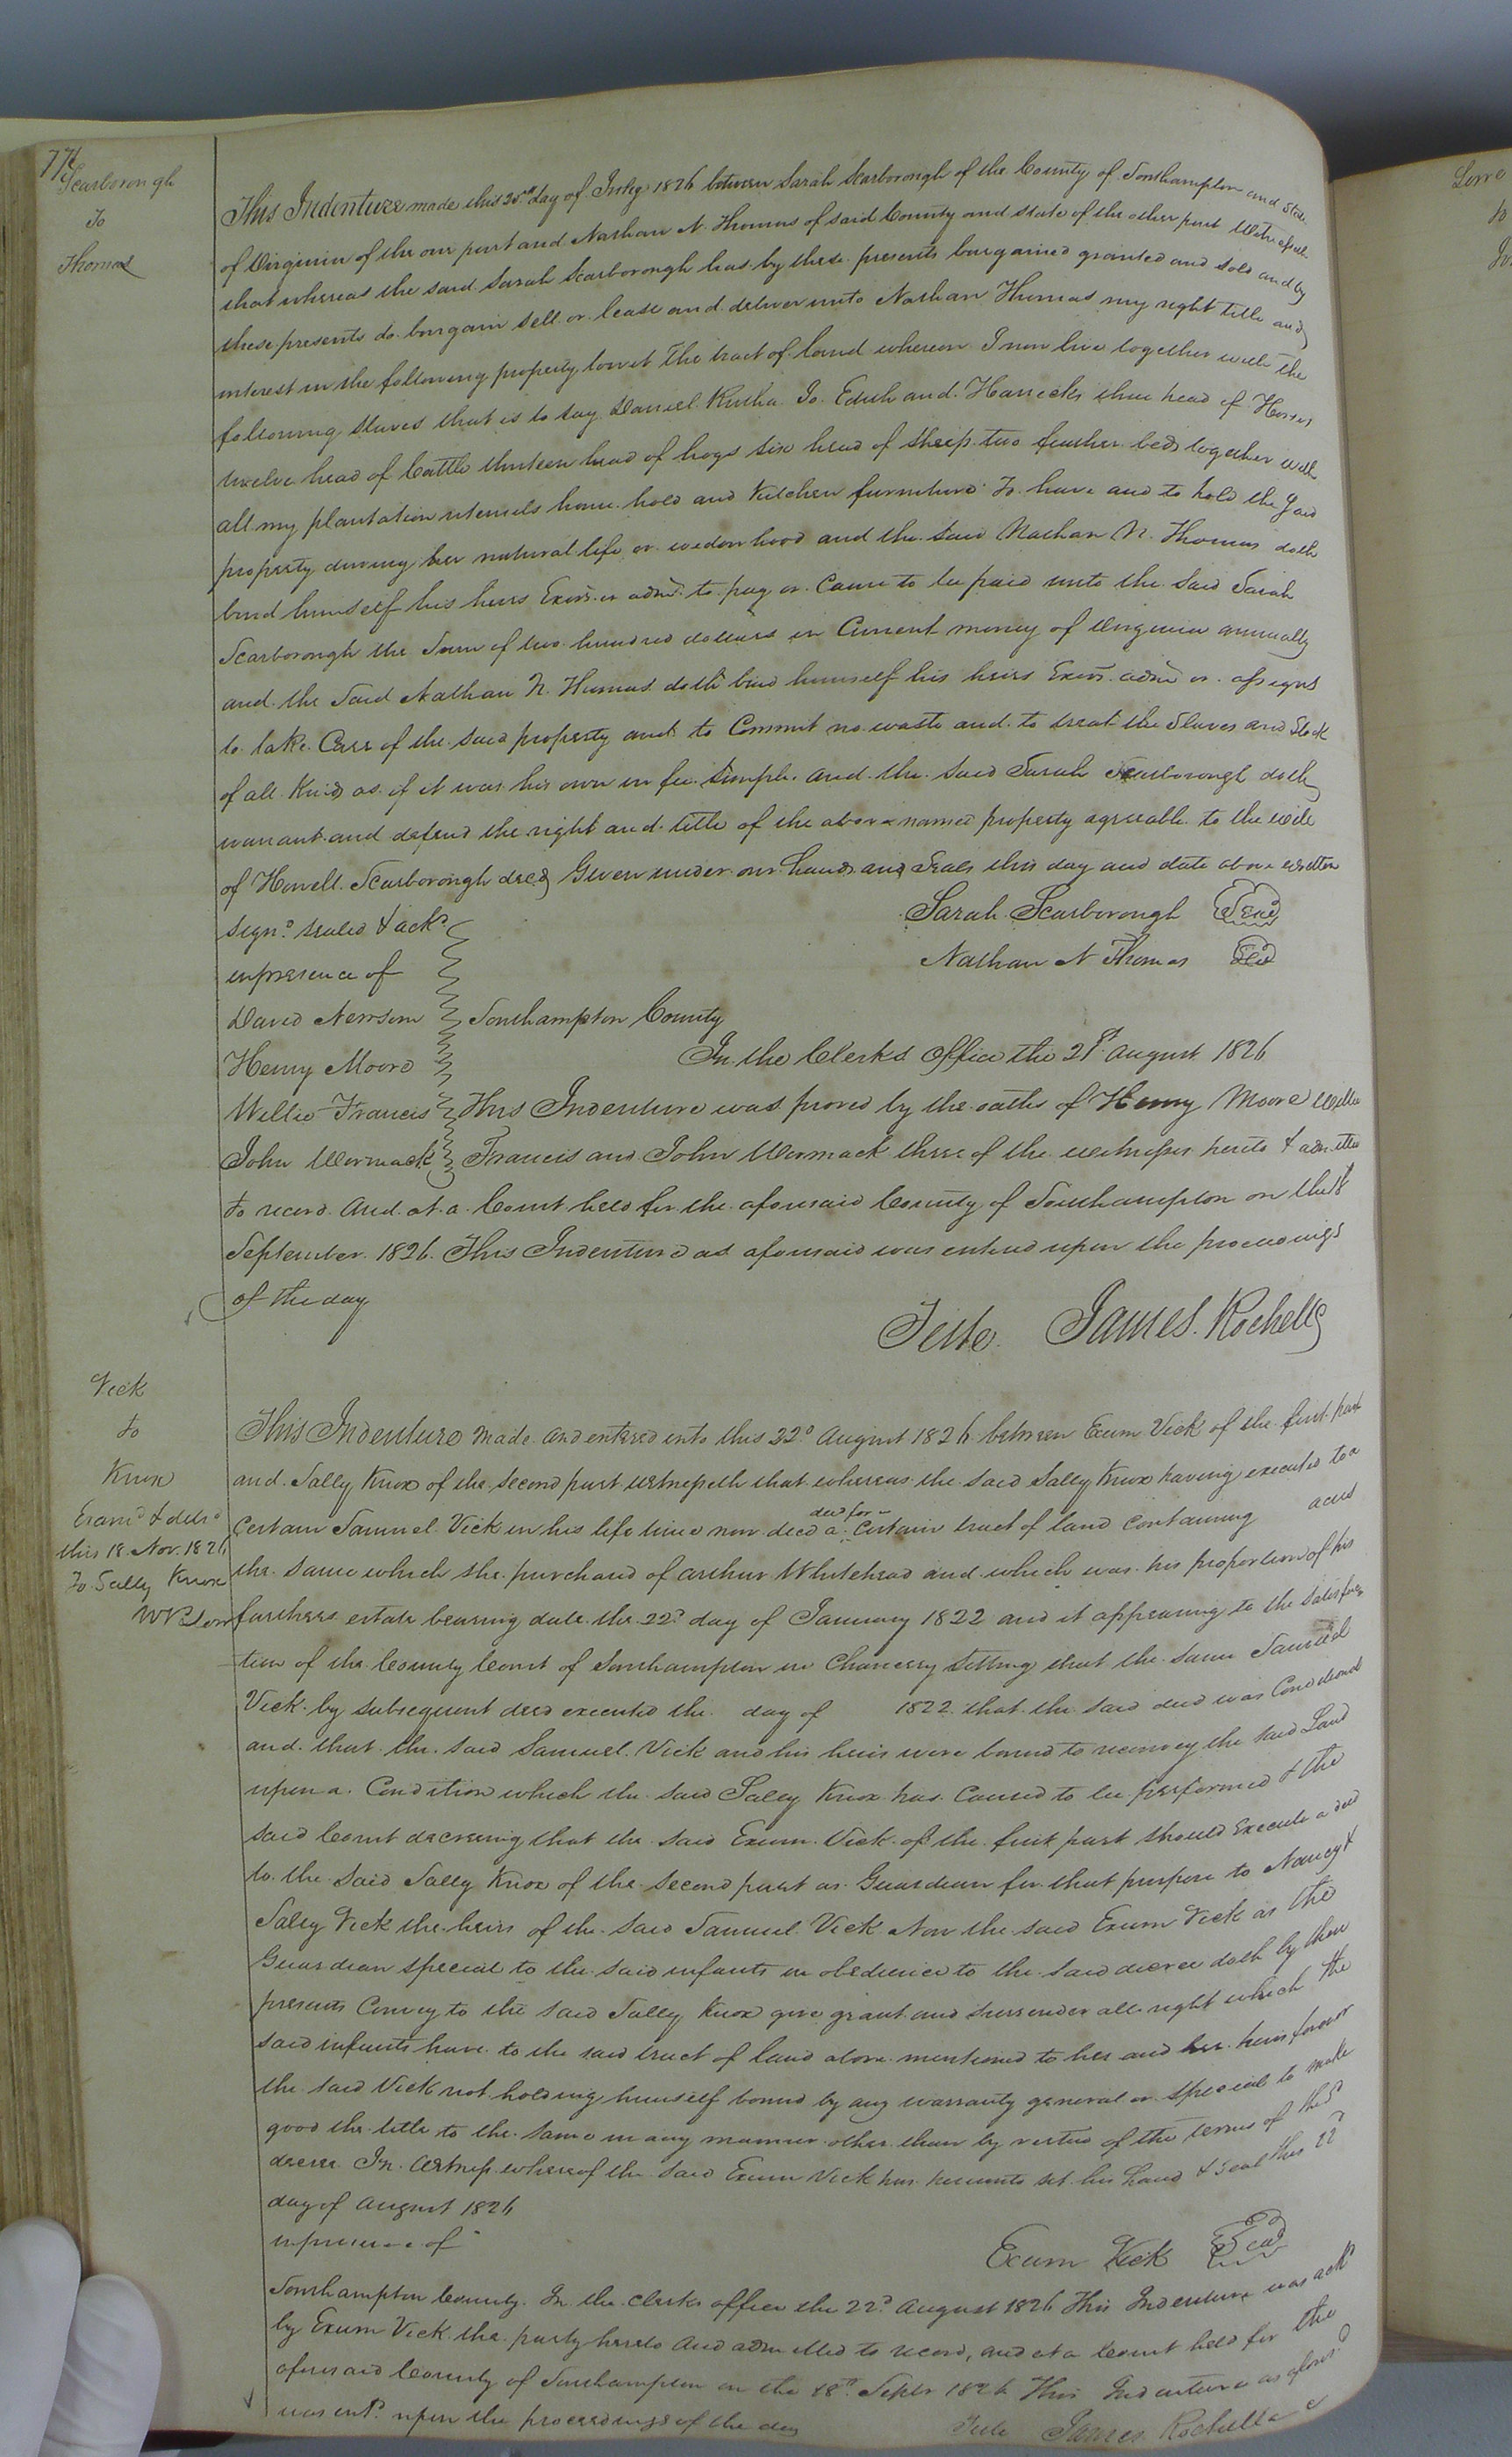 Scarborough
To
Thomas
This Indenture made this 25th day of July 1826 between Sarah Scarborough of the County of Southampton and State
of Virginia of the one part and Nathan N. Thomas of said County and state of the other part Witnesseth
that whereas the said Sarah Scarborough has by these presents bargained granted and sold and by
these presents do bargain sell or lease and deliver unto Nathan Thomas my right title and
interest in the following property towit The tract of land whereon I now live together with the
following slaves that is to say Daniel Jo. Edith and three head of Horses
twelve head of Cattle thirteen head of hogs six head of sheep two feather beds together with
all my plantation utensils house hold and Kitchen furniture To have and to hold the said
property during her natural life or widow hood and the said Nathan N. Thomas doth
bind himself his heirs Exors. or adms. to pay or Cause to be paid unto the said Sarah
Scarborough the Sum of two hundred dollars in Current money of Virginia annually
and the Said Nathan N. Thomas doth bind himself his heirs Exors. adms or assigns
to take Care of the said property and to Commit no waste and to treat the Slaves and Stock
of all Kind as if it was his own in fee simple. and the said Sarah Scarborough doth
warrant and defend the right and title of the above named property agreeable to the will
of Howell Scarborough decd Given under our hands and Seals this day and date above written
Sarah Scarborough Seal
Nathan N Thomas Seal
Signd. sealed & ackd.
in presence of
David Newsom
Henry Moore
Willie Francis
John Wormack
Southampton County
In the Clerks Office the 21st August 1826
This Indenture was proved by the oaths of Henry Moore Willie
Francis and John Wormack three of the witnesses hereto & admitted
to record. And at a Court held for the aforesaid County of Southampton on the 18
September 1826. This Indenture as aforesaid was entered upon the proceedings
of the day
Teste. James Rochelle
Vick
to
Knox
Examd & deld
this 18 Nov. 1826
To Sally Knox
This Indenture made and entered into this 22d August 1826 between Exum Vick of the first part
and Sally Knox of the second part witnesseth that whereas the said Sally Knox having executed to a
Certain Samuel Vick in his life time now decd a deed for a Certain tract of land Containing acres
the same which she purchased of Arthur Whitehead and which was his proportion of his
farthers estate bearing date the 22d day of January 1822 and it appearing to the satisfac
tion of the County Court of Southampton in Chancery Sitting that the same Samuel
Vick by subsequent deed executed the day of 1822 that the said deed was Conditional
and that the said Samuel Vick and his heirs were bound to reconvey the said Land
upon a Condition which the said Sally Knox has Caused to be performed & the
said Court decreeing that the said Exum Vick of the first part should Execute a deed
to the said Sally Knox of the second part as Guardian for that purpose to Nancy &
Sally Vick the heirs of the said Samuel Vick Now the said Exum Vick as the
Guardian special to the said infants in obedience to the said decree doth by these
presents Convey to the said Sally Knox give grant and surrender all right which the
said infants have to the said tract of land above mentioned to her and her heirs forever
the said Vick not holding himself bound by any warranty general or special to make
good the title to the same in any manner other than by virtue of the terms of the sd
decree In Witness whereof the said Exum Vick has hereunto set his hand & seal this 22d
day of August 1826
in presence of
Exum Vick Seal
Southampton County. In the Clerks office the 22d August 1826 This Indenture was ackd
by Exum Vick the party hereto and admitted to record, and at a Court held for the
aforesaid County of Southampton on the 18th Septr 1826 This Indenture as aforesd
was entd. upon the proceedings of the day
Teste James Rochelle